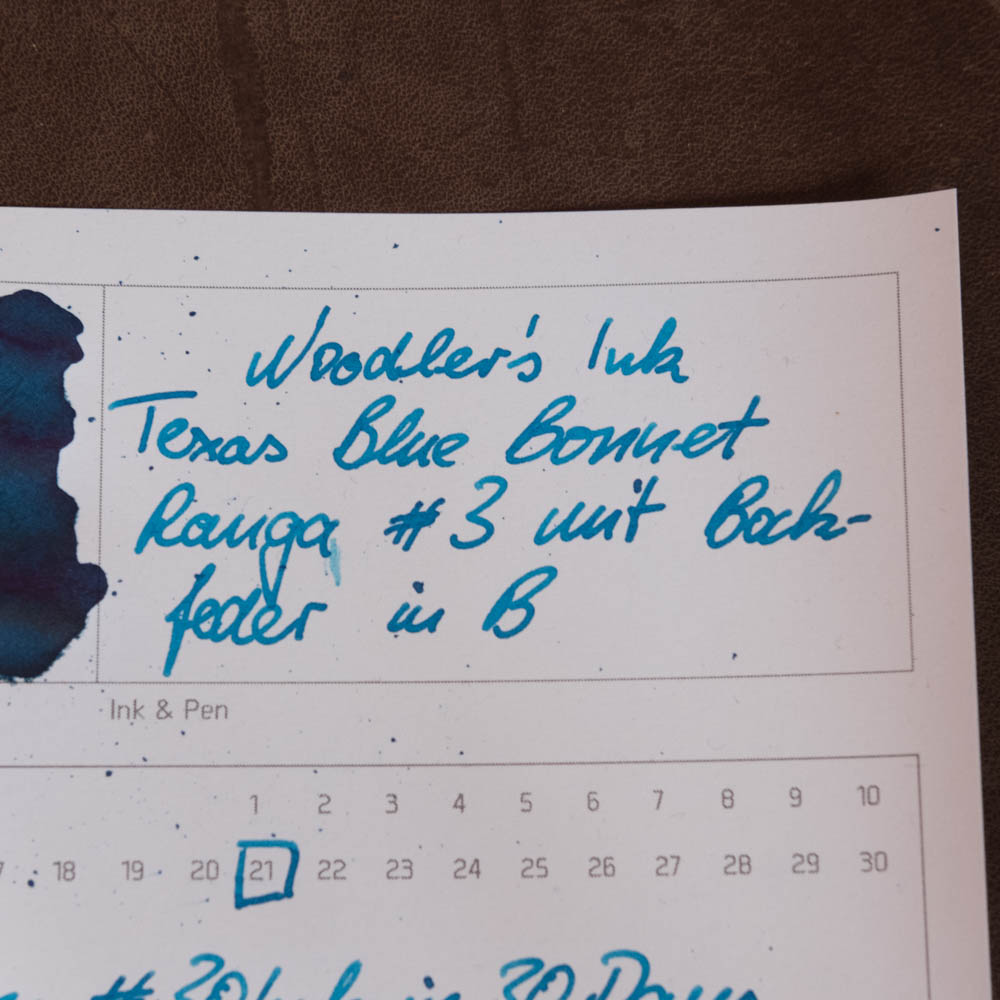 Noodler's Ink
Texas Blue Bonnet
Ranga #3 mit Bock-
feder in B
Ink & Pen
1 2 3 4 5 6 7 8 9 10
18 19 20 21 22 23 24 25 26 27 28 29 30
#30Ink in 30 Days